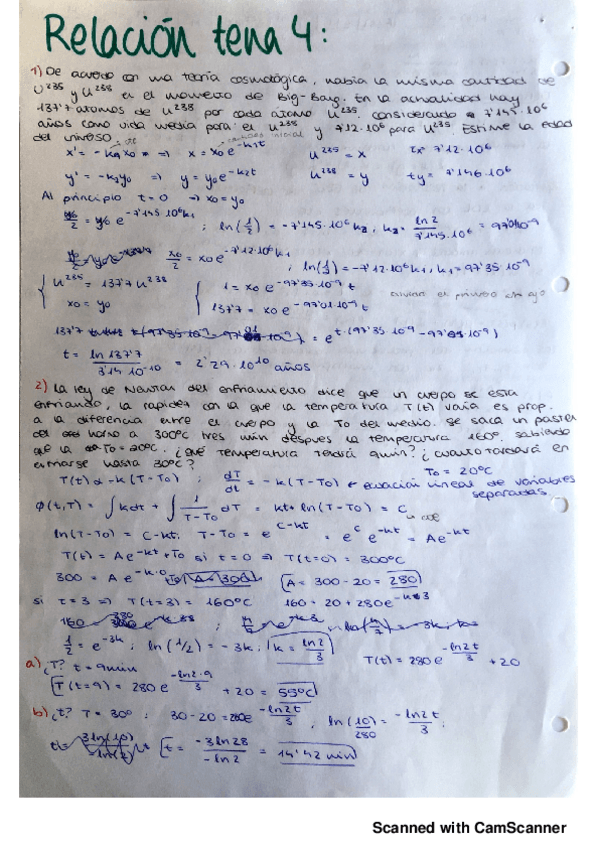 Relación tema 4:
1) De acuerdo con una teoría cosmológica, había la misma cantidad de
U²³⁵ y U²³⁸ en el momento de Big-Bang. En la actualidad hay
137'7 átomos de U²³⁸ por cada átomo U²³⁵. Considerando 7'145·10⁶
años como vida media para el U²³⁸ y 7'12·10⁶ para U²³⁵. Estime la edad
del universo.
x' = -k₁x ⇒ x = x₀e^-k₁t U²³⁵ = x tx = 7'12·10⁶
y' = -k₂y₀ ⇒ y = y₀e^-k₂t U²³⁸ = y ty = 7'146·10⁶
Al principio t=0 ⇒ x₀=y₀
y₀/2 = y₀ e^-7'145·10⁶k₂ ; ln(1/2) = -7'145·10⁶ k₂, k₂ = ln2/7'145·10⁶ = 97'01·10⁻⁹
x₀/2 = x₀e^-7'12·10⁶k₁ ; ln(1/2) = -7'12·10⁶k₁, k₁ = 97'35·10⁻⁹
U²³⁵ = 137'7 U²³⁸ 1 = x₀ e^-97'35·10⁻⁹ t
x₀ = y₀ 137'7 = x₀ e^-97'01·10⁻⁹ t
137'7 = e^t·(97'35·10⁻⁹ - 97'01·10⁻⁹)
t = ln 137'7 / 3'14·10⁻¹⁰ = 2'29·10¹⁰ años
2) La ley de Newton del enfriamiento dice que un cuerpo se está
enfriando, la rapidez con la que la temperatura T(t) varía es prop.
a la diferencia entre el cuerpo y la T₀ del medio. Se saca un pastel
del horno a 300°C tres min después la temperatura 160°. sabiendo
que la T₀=20°C. ¿qué temperatura tendrá 9min? ¿cuanto tardará en
enfriarse hasta 30°C? T₀ = 20°C
T(t) α -k(T-T₀) ; dT/dt = -k(T-T₀) ← ecuación lineal de variables
separadas
φ(t,T) = ∫kdt + ∫1/(T-T₀) dT = kt + ln(T-T₀) = C
ln(T-T₀) = C-kt; T-T₀ = e^C-kt = e^C e^-kt = Ae^-kt
T(t) = Ae^-kt + T₀ si t=0 ⇒ T(t=0) = 300°C
300 = A e^-k·0 A = 300-20 = 280
si t=3 ⇒ T(t=3) = 160°C 160 = 20 + 280e^-k3
1/2 = e^-3k ; ln(1/2) = -3k ; k = ln2/3 T(t) = 280e^-ln2t/3 + 20
a) ¿T? t=9min
T(t=9) = 280 e^-ln2·9/3 + 20 = 55°C
b) ¿t? T=30° ; 30-20 = 280e^-ln2t/3 ; ln(10/280) = -ln2t/3 ;
t = -3ln28/-ln2 = 14'42 min
Scanned with CamScanner